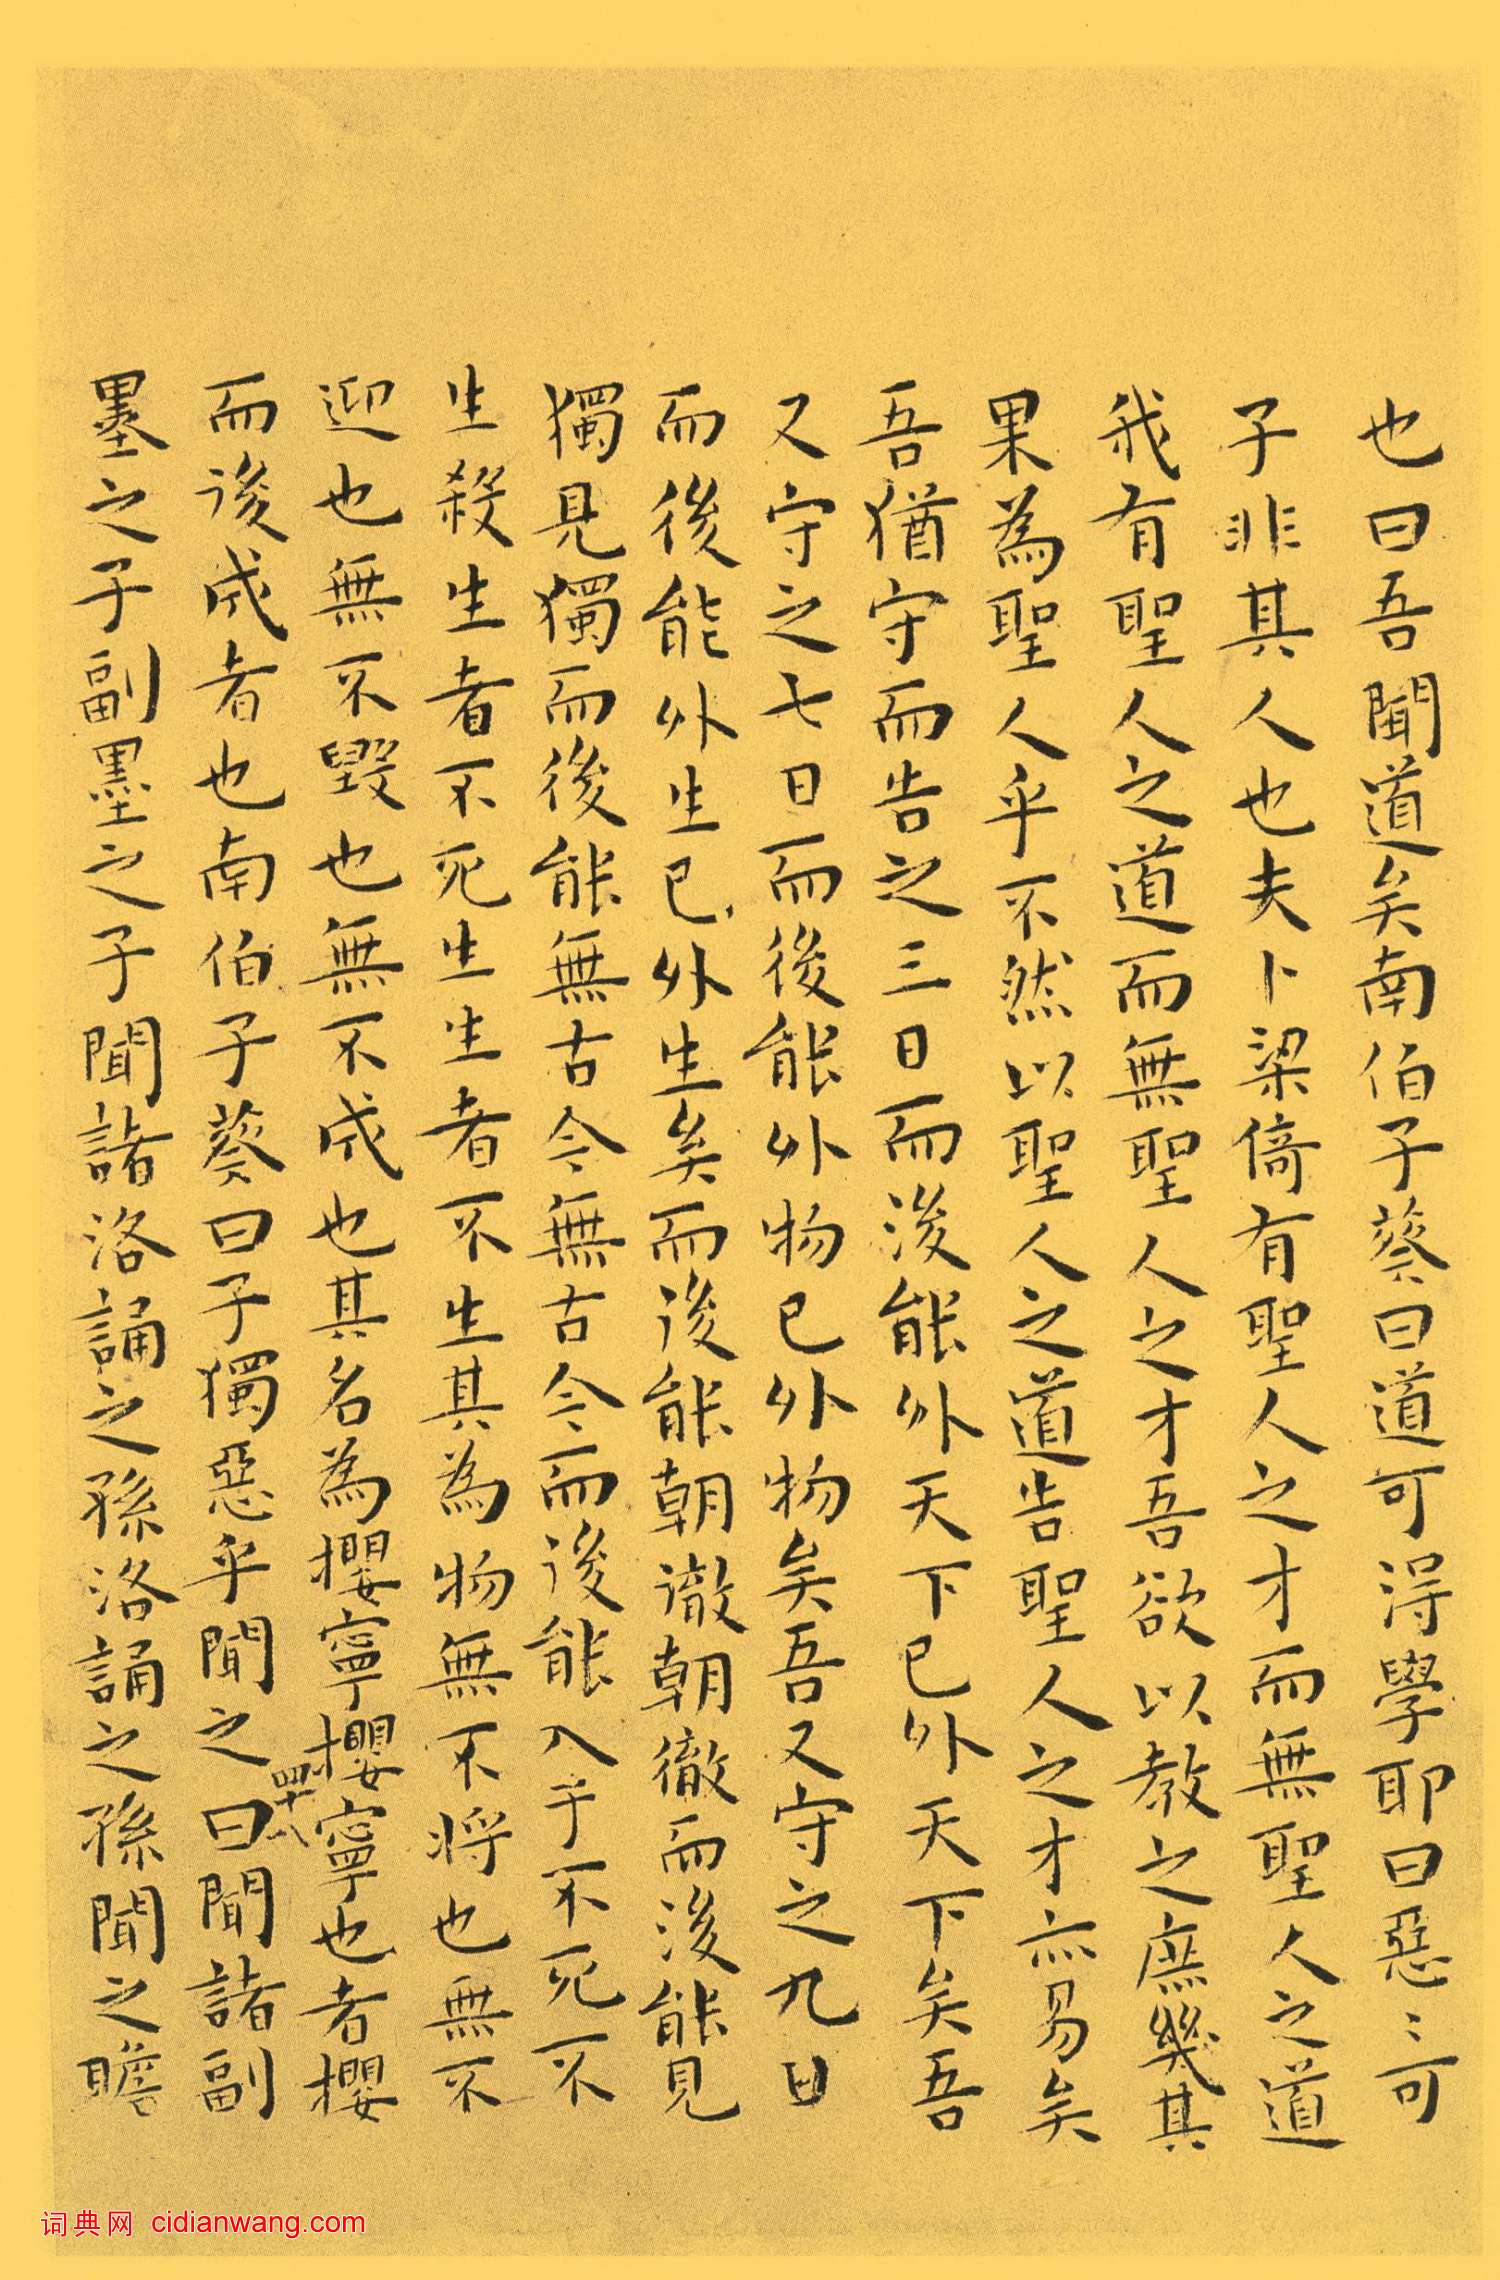 也曰吾聞道矣南伯子葵曰道可得學耶曰惡〻可
子非其人也夫卜梁倚有聖人之才而無聖人之道
我有聖人之道而無聖人之才吾欲以教之庶幾其
果為聖人乎不然以聖人之道告聖人之才亦易矣
吾猶守而告之三日而後能外天下已外天下矣吾
又守之七日而後能外物已外物矣吾又守之九日
而後能外生已外生矣而後能朝徹朝徹而後能見
獨見獨而後能無古今無古今而後能入于不死不
生殺生者不死生生者不生其為物無不將也無不
迎也無不毀也無不成也其名為攖寧攖寧也者攖
而後成者也南伯子葵曰子獨惡乎聞之曰聞諸副
四十八
墨之子副墨之子聞諸洛誦之孫洛誦之孫聞之瞻
词典网 cidianwang.com